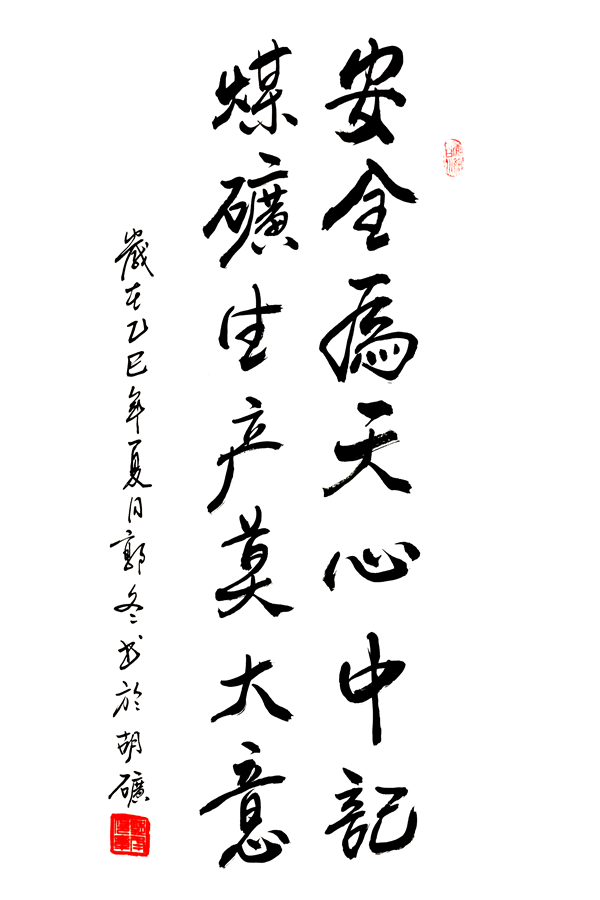 安全為天心中記
煤礦生产莫大意
歲在乙巳年夏日郭冬书於胡礦